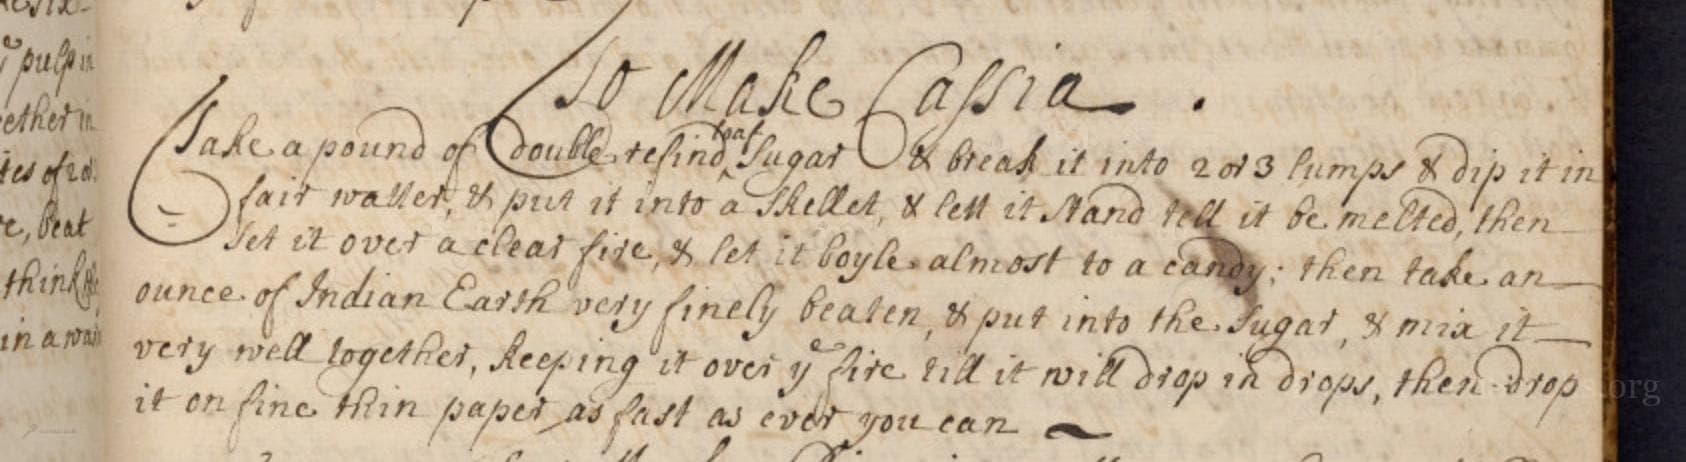 To Make Cassia .
Take a pound of double refind loaf Sugar & break it into 2 or 3 lumps & dip it in
fair watter, & put it into a skellet, & lett it stand tell it be melted, then
set it over a clear fire, & let it boyle almost to a candy; then take an
ounce of Indian Earth very finely beaten, & put into the Sugar, & mix it
very well together, keeping it over ye fire till it will drop in drops, then drop
it on fine thin paper as fast as ever you can
pulp in
ether in
tes of 2 or
re, beat
think
in a
.org